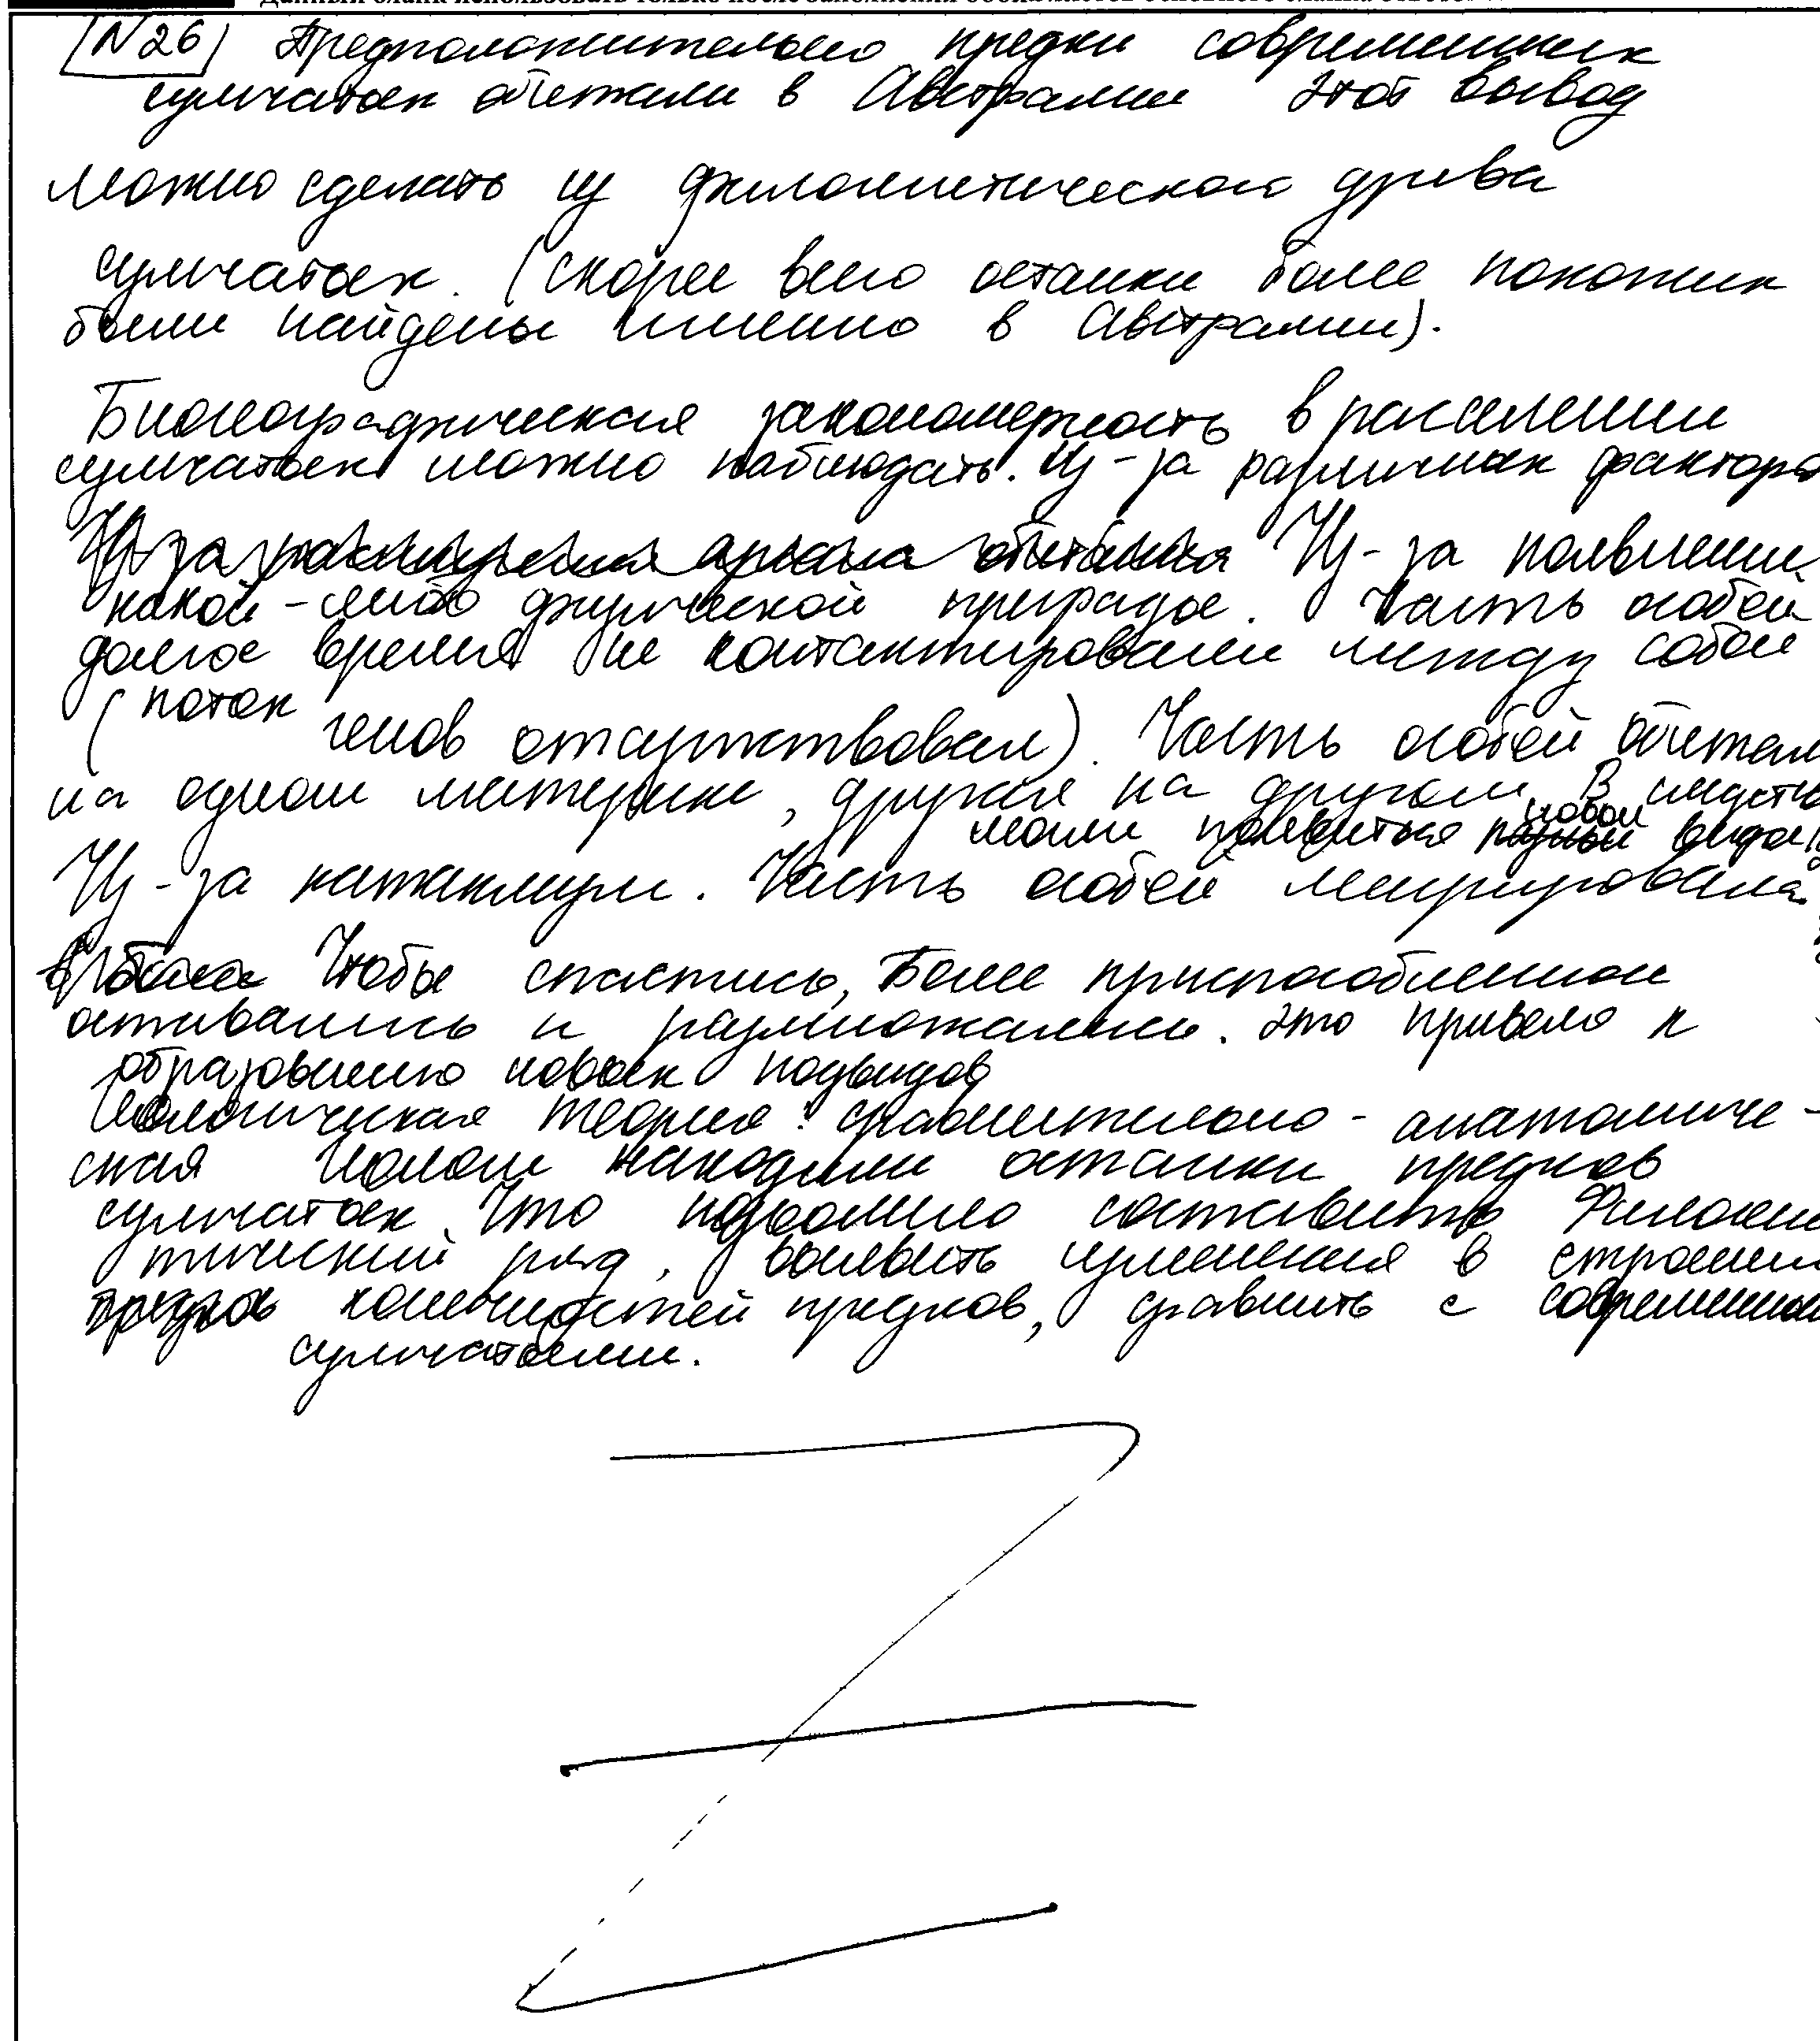 №26 Предположительно предки современных
сумчатых обитали в Австралии Этот вывод
можно сделать из филогенетического древа
сумчатых. (скорее всего останки более похожих
были найдены именно в Австралии).
Биогеографическая закономерность в расселении
сумчатых можно наблюдать. Из-за различных фактора
Из-за появлени
какой-либо физической преграды. Часть особей
долгое время не контактировали между собой
(поток генов отсутствовал). Часть особей обитал
на одном материке, другая на другом. В
могли появиться новой вида
Из-за катаклизм. Часть особей мигрировала
Чтобы спастись, Более приспособленной
оставались и размножались. Это привело к
образованию новых подвидов
теория: сравнительно-анатомиче-
ская находили останки предков
сумчатых. Что позволило составить Филогене
тический ряд, выявить изменения в строени
конечностей предков, сравнить с современным
сумчатыми.